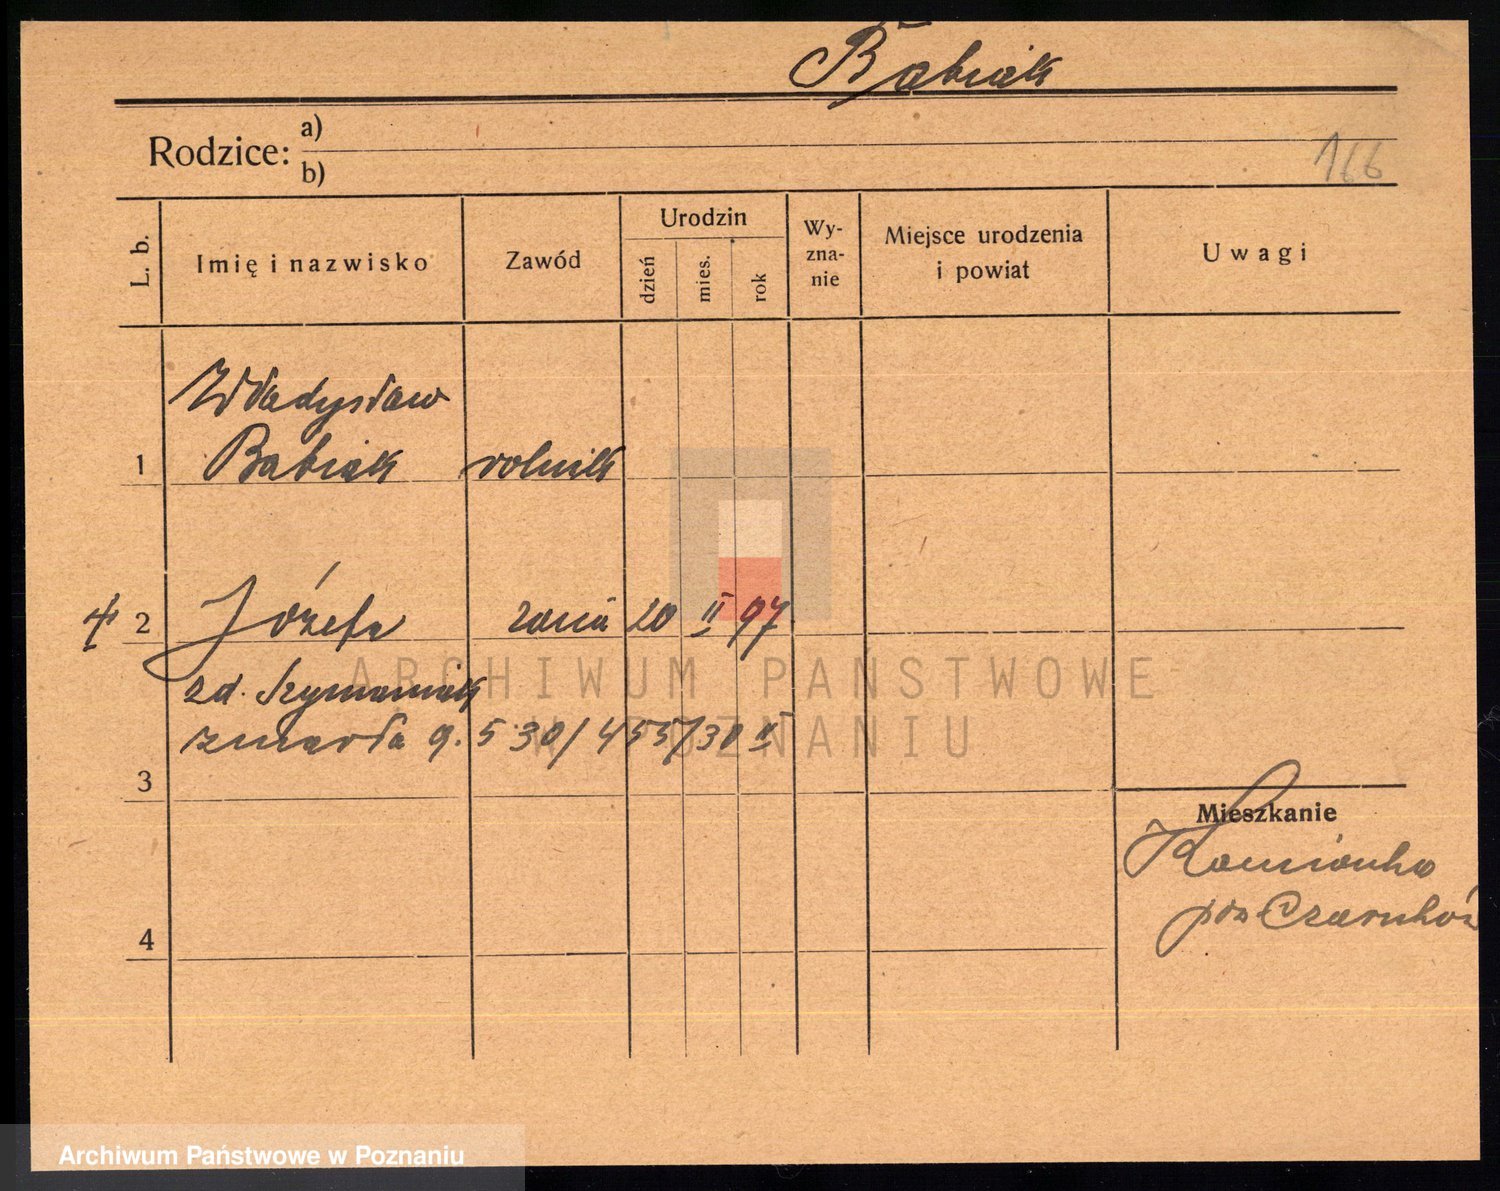 Babiak
Rodzice: a)
b)
166
L. b. Imię i nazwisko Zawód Urodzin dzień mies. rok Wy-zna-nie Miejsce urodzenia i powiat Uwagi
Władysław
1 Babiak rolnik
2 Józefa żona 20 II 97
zd. Szymaniak
zmarła 9. 530/455/30 II
3
Mieszkanie
Kamionka
pow Czarnków
4
ARCHIWUM PAŃSTWOWE
W POZNANIU
Archiwum Państwowe w Poznaniu